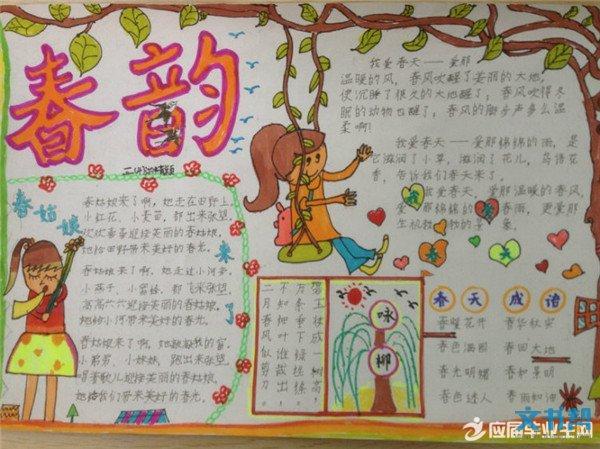 春韵
春姑娘来了
春姑娘来了啊，她走在田野上。
小红花，小麦苗，都出来张望，
欢欢喜喜迎接美丽的春姑娘，
她给田野带来美好的春光。
春姑娘来了啊，她走过小河旁。
小燕子，小蜜蜂，都飞来张望，
高高兴兴迎接美丽的春姑娘。
她给小河带来美好的春光。
春姑娘来了啊，
小男男，小妹妹，跑出来张望，
迎接美丽的春姑娘，
她给我们带来美好的春光。
我爱春天——爱那
温暖的风，春风吹醒了美丽的大地，
使沉睡了很久的大地醒了；春风吹得冬
眠的动物也醒了；春风的脚步声多么温
柔啊！
我爱春天——爱那锦锦的雨，是
它滋润了小草，滋润了花儿，鸟语花
香，告诉我们春天来了。
我爱春天，爱那温暖的春风，
爱那锦锦的春雨，更爱那
生机的景象。
我爱春天
咏柳
碧玉妆成一树高，
万条垂下绿丝绦。
不知细叶谁裁出，
二月春风似剪刀。
春天成语
春暖花开 春华秋实
春色满园 春回大地
春光明媚 春和景明
春色迷人 春雨如油
应届毕业生网
文书帮